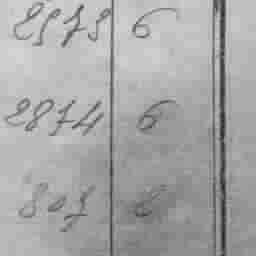 2973 6
2874 6
807 8